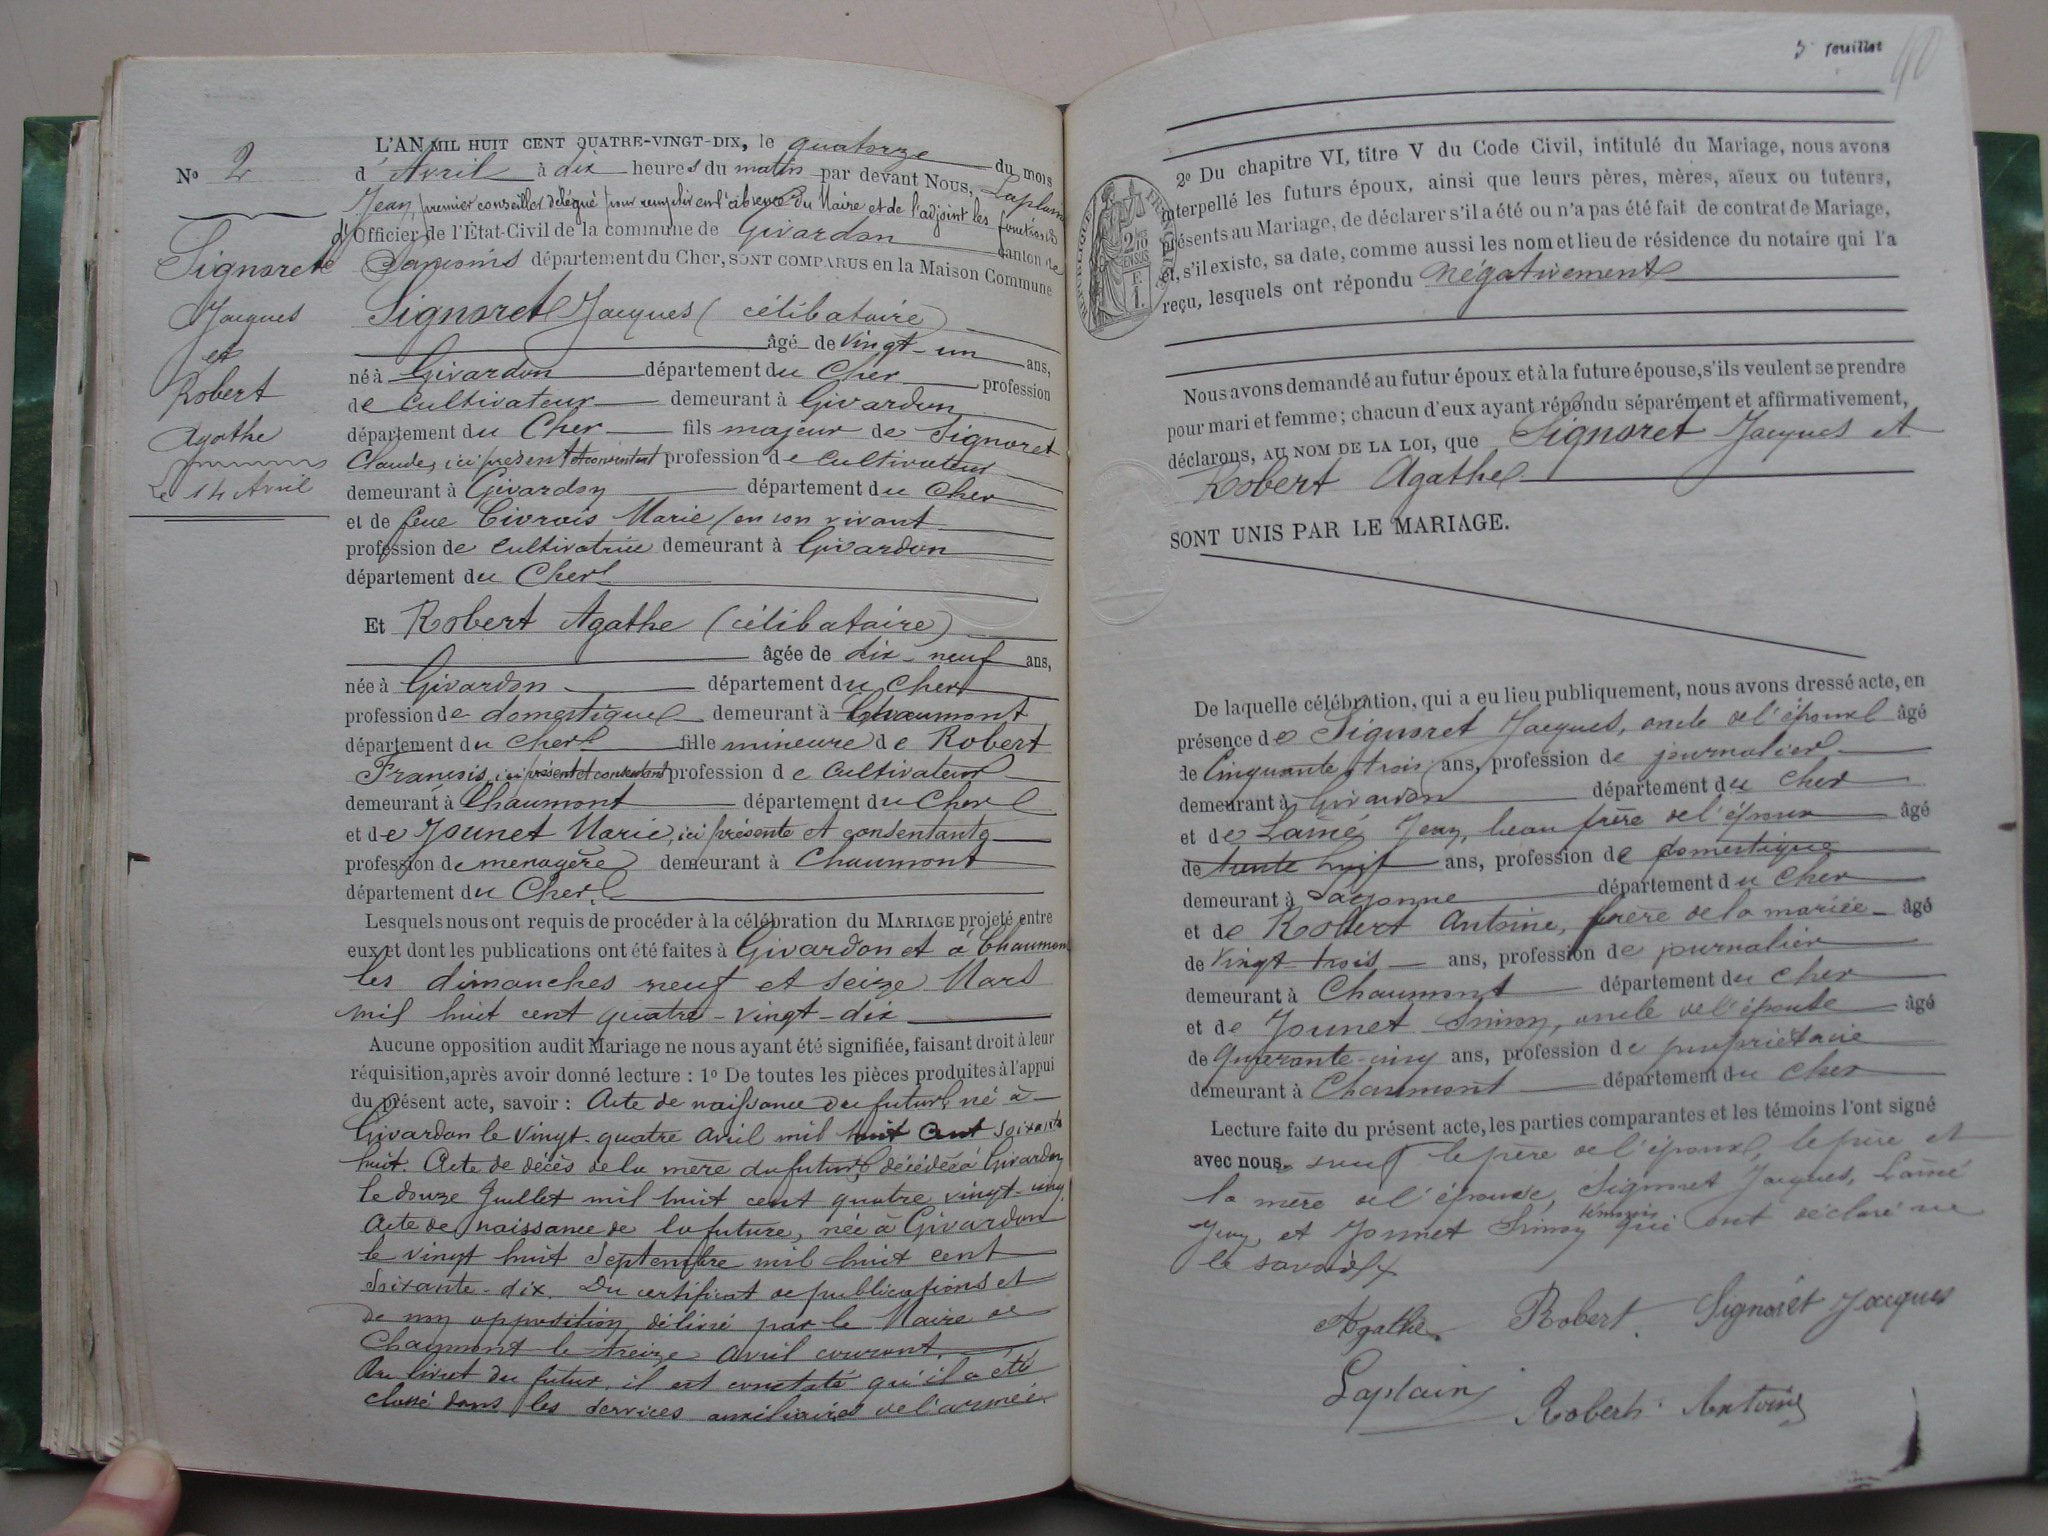 L'AN MIL HUIT CENT QUATRE-VINGT-DIX, le quatorze du mois
N° 2
d'Avril à dix heures du matin par devant Nous, Laplain
Jean, premier conseiller délégué pour remplir en l'absence du Maire et de l'adjoint les fonctions
d'Officier de l'État-Civil de la commune de Givardon canton de
Sancoins département du Cher, SONT COMPARUS en la Maison Commune
Signoret
Jacques
et
Robert
Agathe
Le 14 Avril
Signoret Jacques (célibataire)
âgé de vingt-un ans,
né à Givardon département du Cher profession
de cultivateur demeurant à Givardon
département du Cher fils majeur de Signoret
Claude, ici présent et consentant profession de cultivateur
demeurant à Givardon département du Cher
et de feue Civrais Marie en son vivant
profession de cultivatrice demeurant à Givardon
département du Cher
Et Robert Agathe (célibataire)
âgée de dix-neuf ans,
née à Givardon département du Cher
profession de domestique demeurant à Chaumont
département du Cher fille mineure de Robert
François, ici présent et consentant profession de cultivateur
demeurant à Chaumont département du Cher
et de Jounet Marie, ici présente et consentante
profession de menagère demeurant à Chaumont
département du Cher
Lesquels nous ont requis de procéder à la célébration du MARIAGE projeté entre
eux et dont les publications ont été faites à Givardon et à Chaumont
les dimanches neuf et seize Mars
mil huit cent quatre-vingt-dix
Aucune opposition audit Mariage ne nous ayant été signifiée, faisant droit à leur
réquisition, après avoir donné lecture : 1° De toutes les pièces produites à l'appui
du présent acte, savoir : Acte de naissance du futur, né à
Givardon le vingt-quatre avril mil huit cent soixante
huit. Acte de décès de la mère du futur, décédée à Givardon
le douze Juillet mil huit cent quatre vingt-un,
Acte de naissance de la future, née à Givardon
le vingt huit Septembre mil huit cent
soixante-dix. Du certificat de publications et
de non opposition délivré par le Maire de
Chaumont le treize avril courant.
Au livret du futur, il est constaté qu'il a été
classé dans les services auxiliaires de l'armée
5e feuillet
40
2° Du chapitre VI, titre V du Code Civil, intitulé du Mariage, nous avons
interpellé les futurs époux, ainsi que leurs pères, mères, aïeux ou tuteurs,
présents au Mariage, de déclarer s'il a été ou n'a pas été fait de contrat de Mariage,
et, s'il existe, sa date, comme aussi les nom et lieu de résidence du notaire qui l'a
reçu, lesquels ont répondu négativement
Nous avons demandé au futur époux et à la future épouse, s'ils veulent se prendre
pour mari et femme ; chacun d'eux ayant répondu séparément et affirmativement,
déclarons, AU NOM DE LA LOI, que Signoret Jacques et
Robert Agathe
SONT UNIS PAR LE MARIAGE.
De laquelle célébration, qui a eu lieu publiquement, nous avons dressé acte, en
présence de Signoret Jacques, oncle de l'époux âgé
de Cinquante trois ans, profession de journalier
demeurant à Givardon département du Cher
et de Lamé Jean, beau frère de l'époux âgé
de trente huit ans, profession de domestique
demeurant à Sagonne département du Cher
et de Robert Antoine, frère de la mariée âgé
de vingt-trois ans, profession de journalier
demeurant à Chaumont département du Cher
et de Jounet Simon, oncle de l'épouse âgé
de quarante-cinq ans, profession de propriétaire
demeurant à Chaumont département du Cher
Lecture faite du présent acte, les parties comparantes et les témoins l'ont signé
avec nous. sauf le père de l'époux, le père et
la mère de l'épouse, Signoret Jacques, Lamé
Jean, et Jounet Simon témoins qui ont déclaré ne
le savoir
Agathe Robert Signorét Jacques
Laplain Robert Antoine